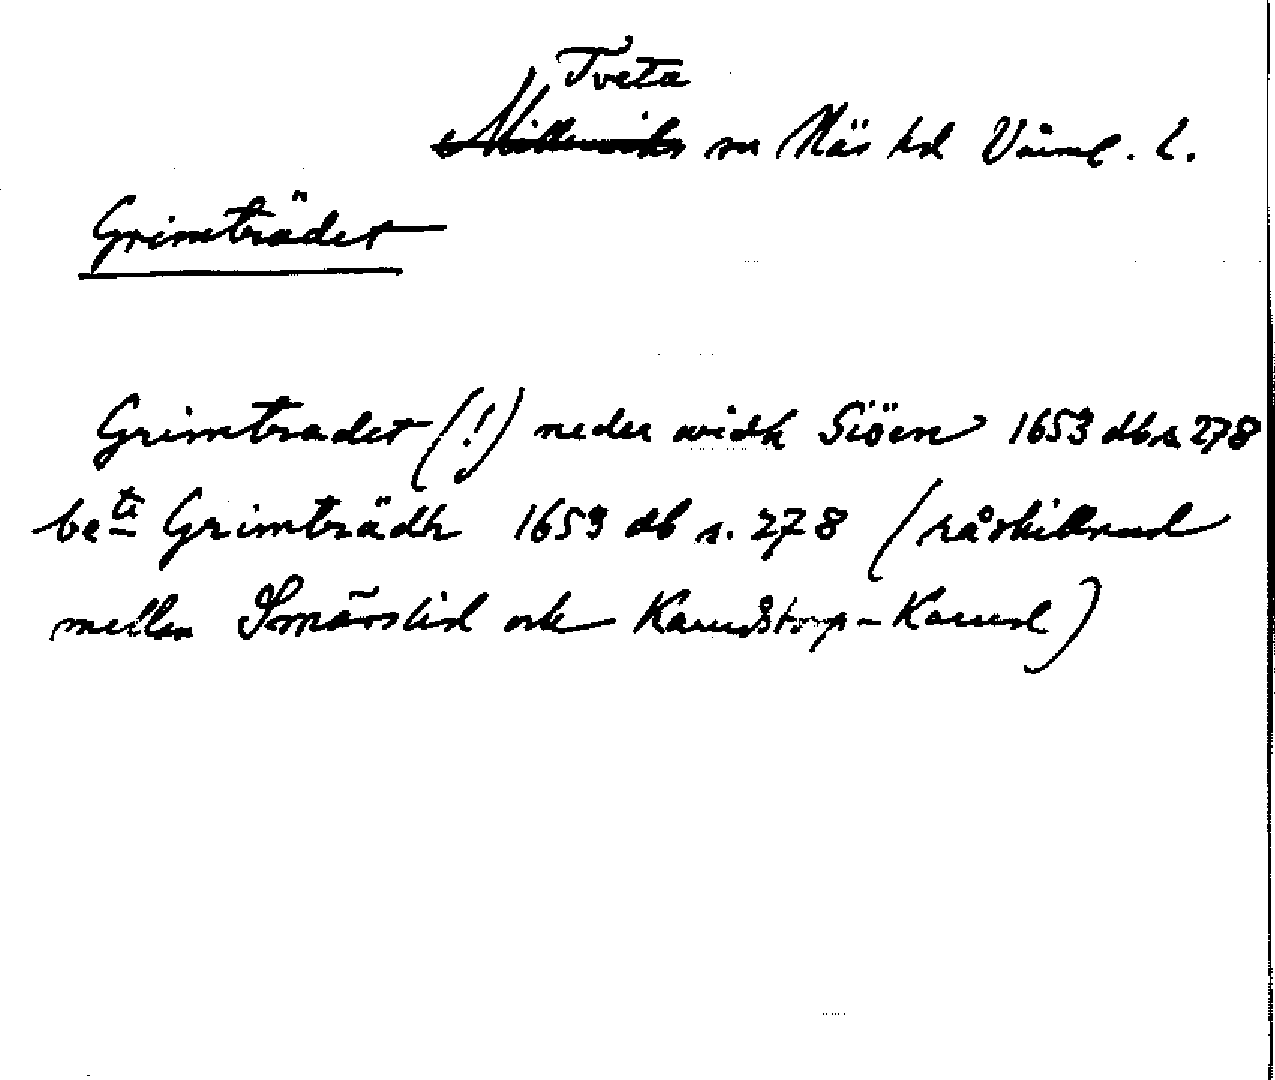 Tveta
sn Näs hd Värml. l.
Grimträdet
Grimtradet (!) neder widh Siöen 1653 db s 278
be:te Grimträdh 1653 db s. 278 (råskillnad
mellan Smörslid och Kamstorp-Kamml)